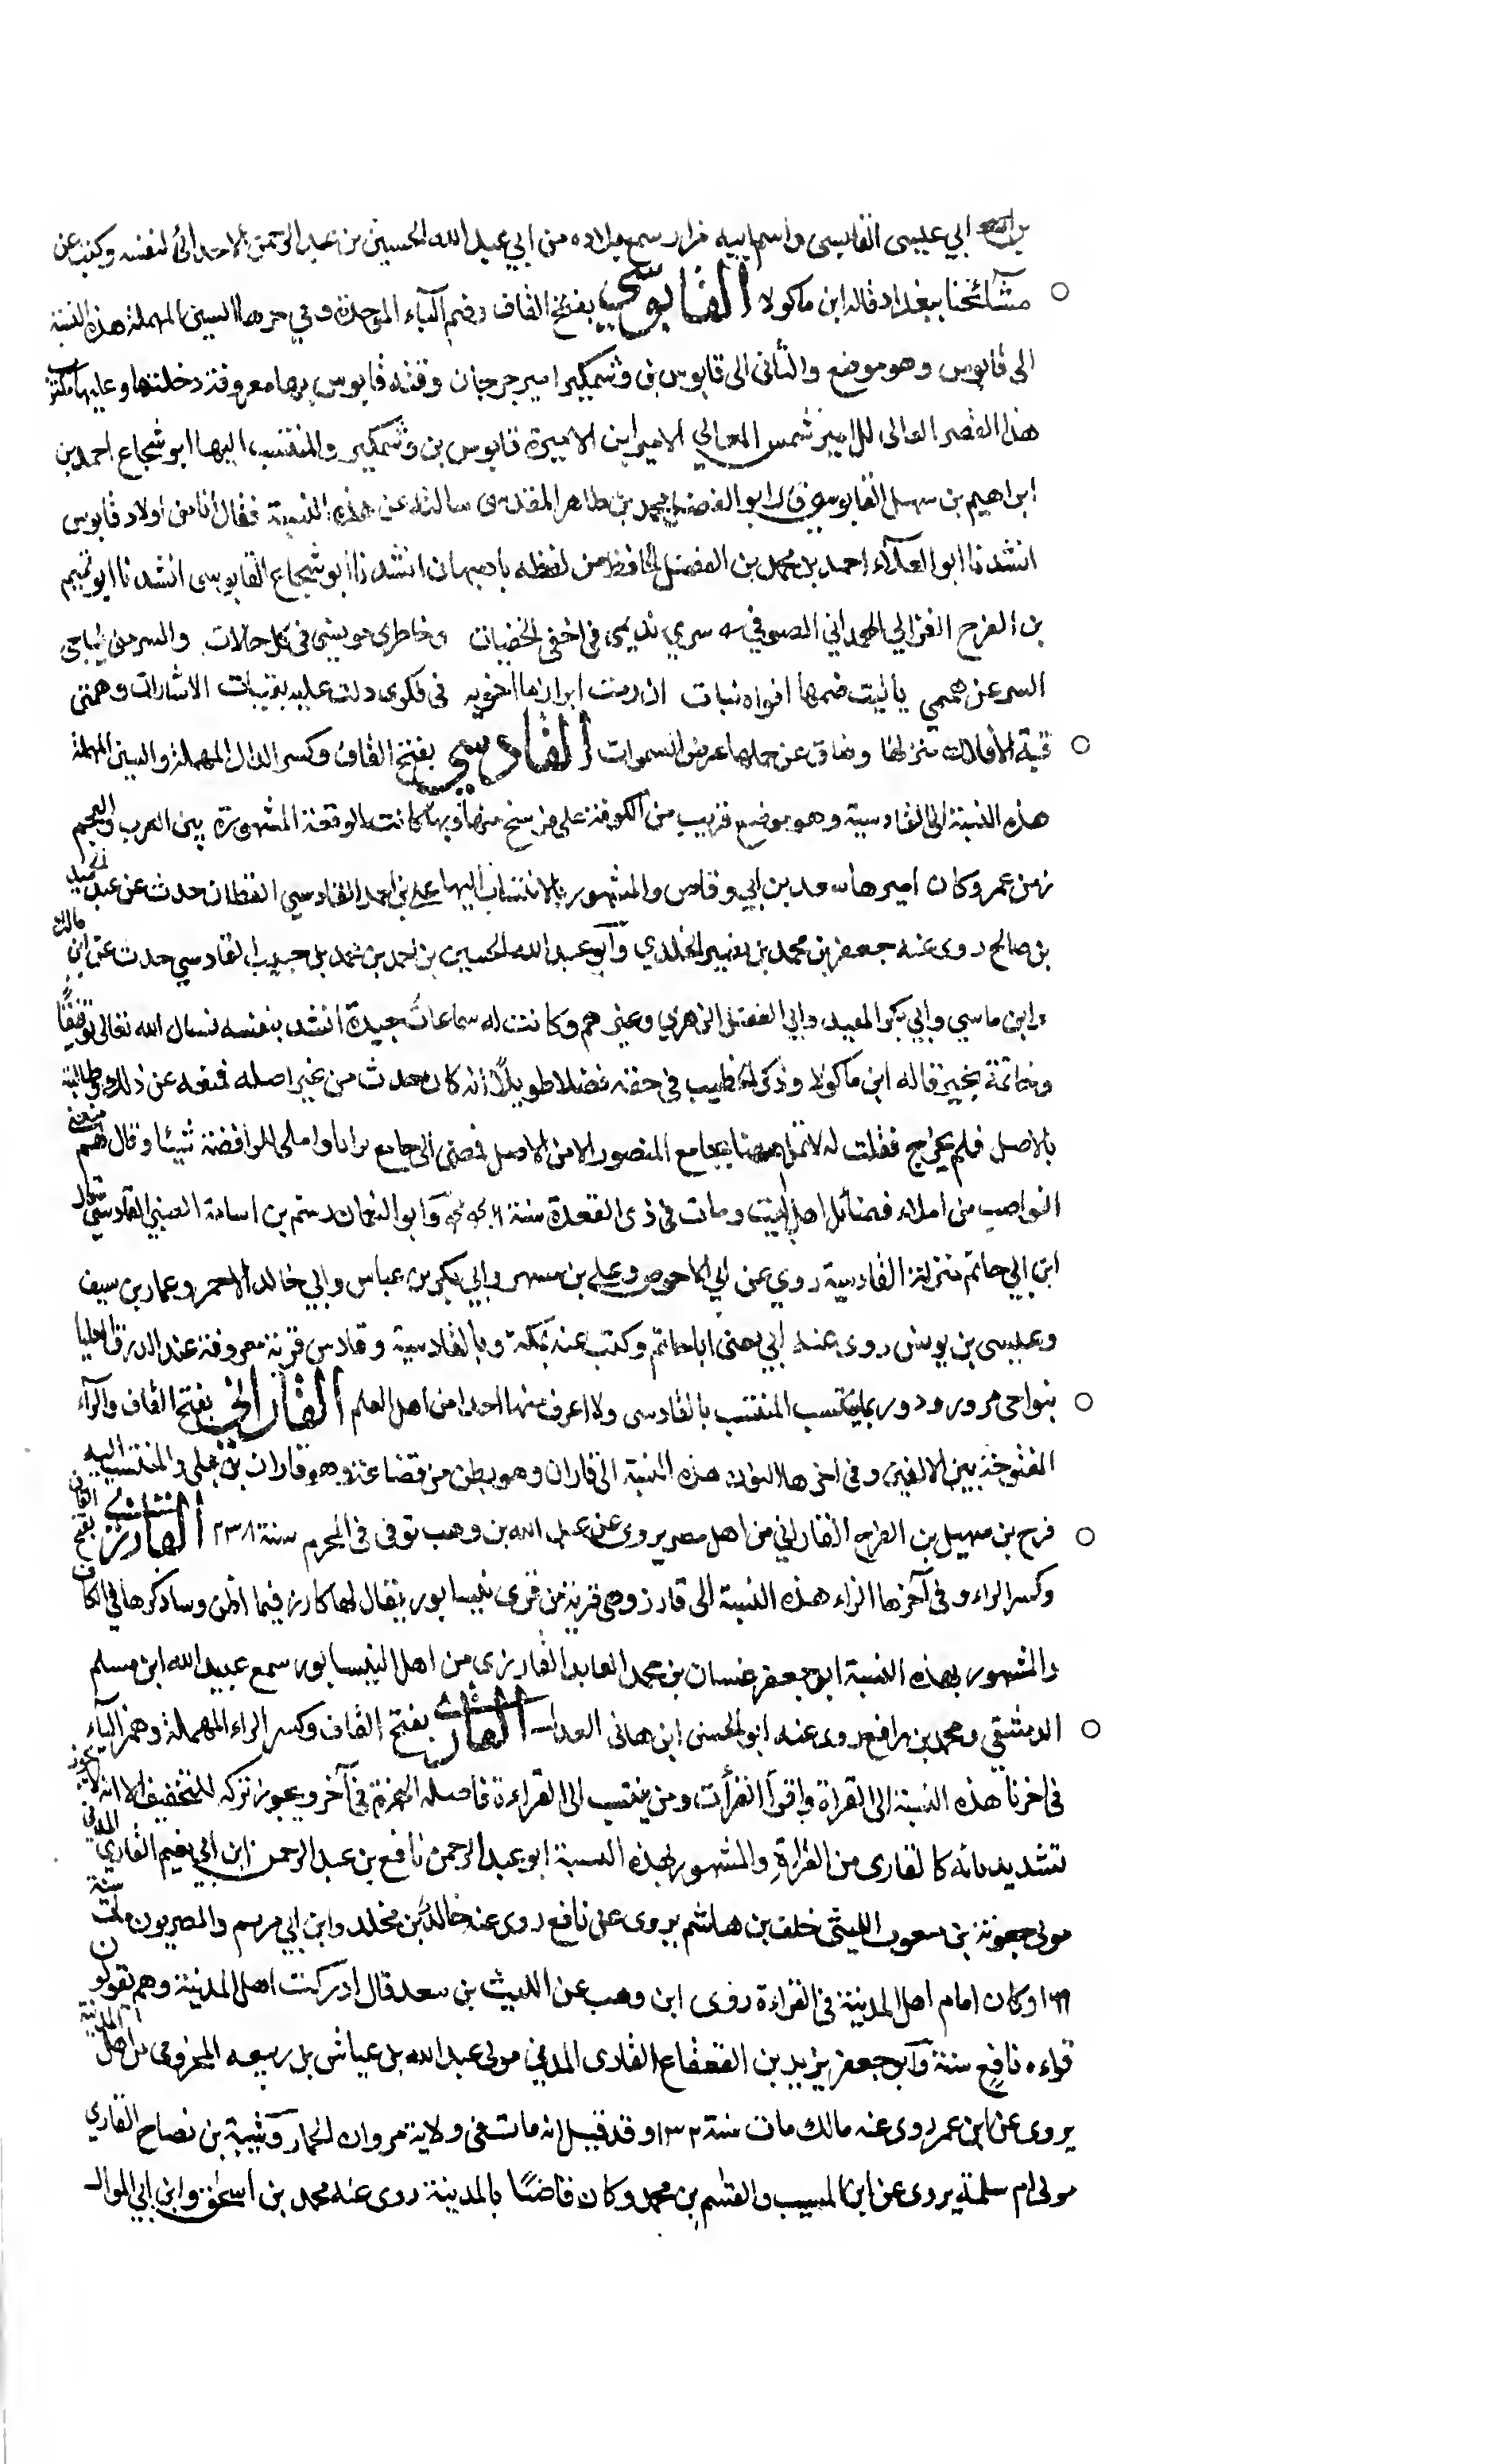 ابي عيسى القابسي واسم ابيه فزارد سمع ببلاده من ابي عبد الله الحسين بن عبد الرحمن الاجدابي لنفسه وكتب عن
مشائخنا ببغداد قاله ابن ماكولا القابوسي بفتح القاف وضم الباء الموحدة وفي اخرها السين المهملة هذه النسبة
الى قابوس وهو موضع والثاني الى قابوس بن وشمكير امير جرجان وقبة قابوس بها معروفة دخلتها وعليها مكتوب
هذا القصر العالي للامير شمس المعالي الامير ابن الاميرة قابوس بن وشمكير والمنتسب اليها ابو شجاع احمد بن
ابراهيم بن سهل القابوسي قال ابو الفضل محمد بن طاهر المقدسي سالته عن هذه النسبة فقال انا من اولاد قابوس
انشدنا ابو العلاء احمد بن محمد بن الفضل الحافظ من لفظه باصبهان انشدنا ابو شجاع القابوسي انشدنا ابو تميم
بن الفرح الغزالي الهمداني الصوفي سه سري نديمي في اخفى الخفيات وخاطري مونسي في كل حالات والسر مني يناجي
السر عن هممي يا ليت ضمها افواه نبات ان رمت ابراز ما اخفيه في فكري دلت عليه بديبات الاشارات وهمتي
قبة الافلاك منزلها وضاق عن حملها عرض السموات القادسي بفتح القاف وكسر الدال المهملة والسين المهملة
هذه النسبة الى القادسية وهو موضع قريب من الكوفة على فرسخ منها وبها كانت الوقعة المشهورة بين العرب والعجم
زمن عمر وكان اميرها سعد بن ابي وقاص والمشهور بالانتساب اليها علي بن احمد القادسي القطان حدث عن عبد الحميد
بن صالح روى عنه جعفر بن محمد بن نصير الخلدي وابو عبد الله الحسين بن احمد بن محمد بن حبيب القادسي حدث عن ابن مالك
وابن ماسي وابي بكر المفيد وابي الفضل الزهري وغيرهم وكانت له سماعات جيدة انشد بنفسه نسال الله تعالى توفيقا
وخاتمة بخير قاله ابن ماكولا وذكر الخطيب في حقه فضلا طويلا انه كان يحدث من غير اصله فمنعه عن ذلك وطالبته
بالاصل فلم يخرج فقلت له لا تمل بجامع المنصور الا من الاصل فمضى الى جامع براثا واملى للرافضة شيئا وقال لهم منعني
النواصب من املاء فضائل اهل البيت ومات في ذي القعدة سنة وابو النعمان رستم بن اسامة الضبي القادسي قال
ابن ابي حاتم نزيل القادسية روى عن ابي الاحوص وعلي بن مسهر وابي بكر بن عياش وابي خالد الاحمر وعمار بن سيف
وعيسى بن يونس روى عنه ابي يعني ابا حاتم وكتب عنه بمكة وبالقادسية وقادس قرية معروفة عند الدرق العليا
بنواحي مرورود وربما ينتسب المنتسب بالقادسي ولا اعرف منها احدا من اهل العلم القاراني بفتح القاف والراء
المفتوحة بين الالفين وفي اخرها النون هذه النسبة الى قاران وهو بطن من قضاعة وهو قاران بن بلي والمنتسب اليه
فرح بن سهيل بن الفرح القاراني من اهل مصر يروي عن عبد الله بن وهب توفي في المحرم سنة ٢٣٨ القارزي بفتح القاف
وكسر الراء وفي آخرها الزاء هذه النسبة الى قارز وهي قرية من قرى نيسابور يقال لها كارز فيما اظن وساذكرها في الكاف
والمشهور بهذه النسبة ابو جعفر غسان بن محمد العابد القارزي من اهل النيسابور سمع عبيد الله ابن مسلم
الدمشقي ومحمد بن رافع روى عنه ابو الحسن ابن هاني العدل القاري بفتح القاف وكسر الراء المهملة وهمز الياء
في اخرها هذه النسبة الى القراة واقرأ القرأت ومن ينتسب الى القراءة فاصله الهمزة في آخر ويجوز تركه للتخفيف الا انه لا يجوز
تشديد يائه كالقاري من القراة والمشهور بهذه النسبة ابو عبد الرحمن نافع بن عبد الرحمن ابن ابي نعيم القاري المدني
مولى جعونة بن سعوب الليثي خلف بن هاشم يروي عن نافع روى عنه خالد بن مخلد وابن ابي مريم والمصريون مات سنة
١٦٩ وكان امام اهل المدينة في القراءة روى ابن وهب عن الليث بن سعد قال ادركت اهل المدينة وهم يقولون
قراءه نافع سنة وابو جعفر يزيد بن القعقاع القاري المدني مولى عبد الله بن عياش بن ربيعه المخزومي من اهل المدينة
يروي عن ابن عمر روى عنه مالك مات سنة ١٣٢ وقد قيل انه مات في ولاية مروان الحمار وشيبة بن نصاح القاري
مولى ام سلمة يروي عن ابن المسيب والقسم بن محمد وكان قاضيا بالمدينة روى عنه محمد بن اسحق وابن ابي الموال